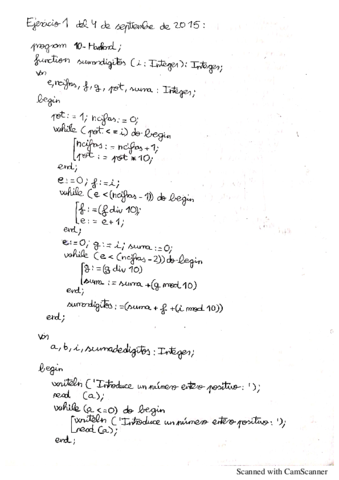 Ejercicio 1 del 4 de septiembre de 2015:
program 10-Madrid;
function sumardigitos (i: Integer): Integer;
var
e, ncifras, f, g, pot, suma : Integer;
begin
pot := 1; ncifras := 0;
while (pot <= i) do begin
ncifras := ncifras + 1;
pot := pot * 10;
end;
e := 0; f := i;
while (e < (ncifras - 1)) do begin
f := (f div 10);
e := e + 1;
end;
e := 0; g := i; suma := 0;
while (e < (ncifras - 2)) do begin
g := (g div 10)
suma := suma + (g mod 10)
end;
sumardigitos := (suma + f + (i mod 10))
end;
var
a, b, i, sumadedigitos : Integer;
begin
writeln ('Introduce un número entero positivo: ');
read (a);
while (a <= 0) do begin
writeln ('Introduce un número entero positivo: ');
read (a);
end;
Scanned with CamScanner